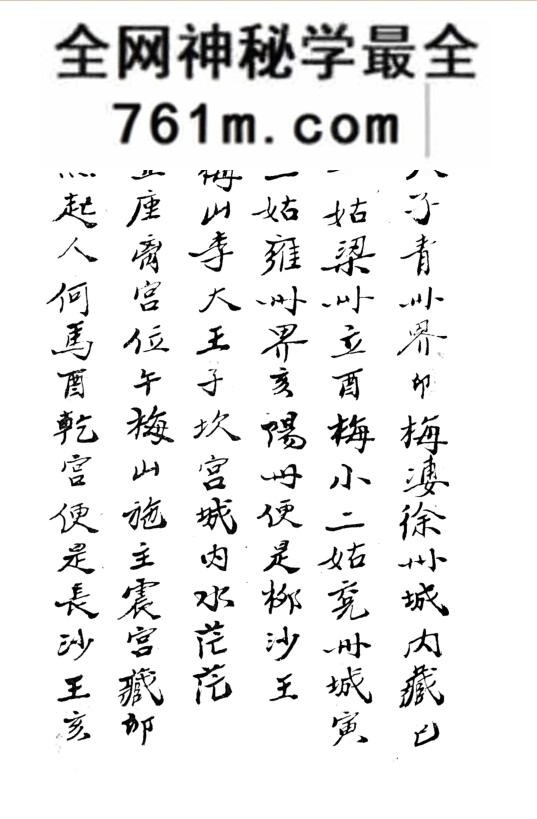 全网神秘学最全
761m.com
子青州界卯梅淒徐州城内藏巳
姑梁州立酉梅小二姑兖州城寅
姑雍州界亥陽州便是柳沙王
梅山李大王子坎宫城内水茫茫
座离宫位午梅山施主震宫藏卯
起人何馬酉乾宫便是長沙王亥